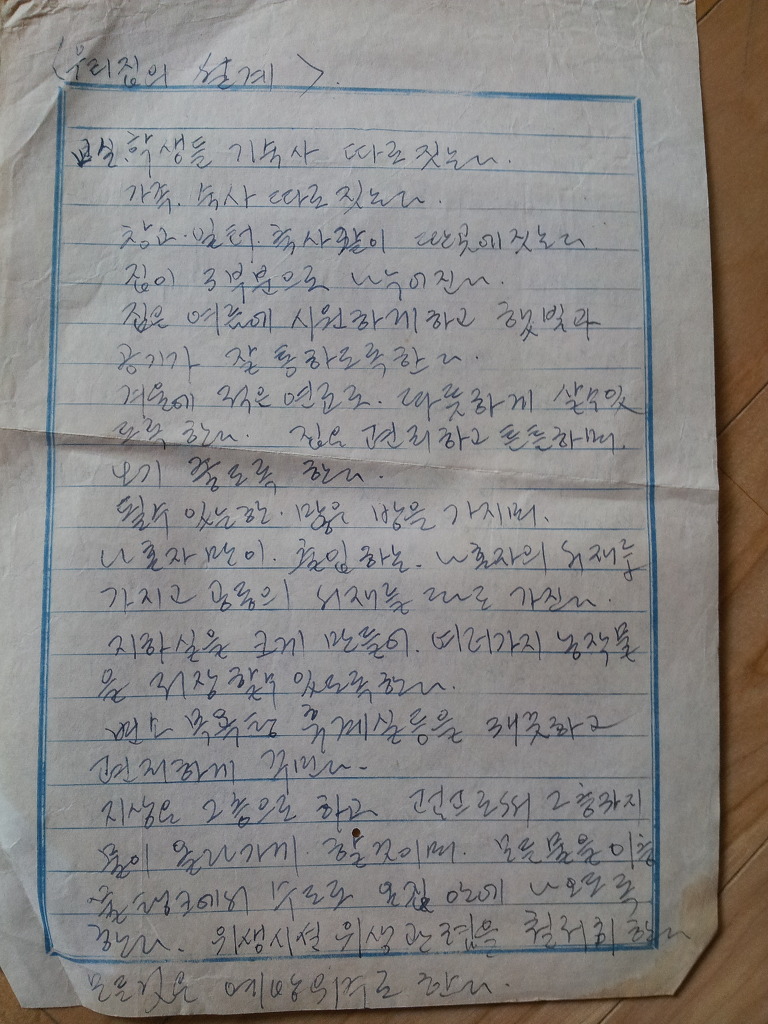 <우리집의 설계>
교실. 학생들 기숙사 따로 짓는다.
가족. 숙사 따로 짓는다.
창고. 일터. 축사같이 딴곳에 짓는다
집이 3부분으로 나누어진다.
집은 여름에 시원하게 하고 햇빛과
공기가 잘 통하도록 한다.
겨울에 적은 연료로. 따뜻하게 살수있
도록 한다. 집은 편리하고 튼튼하며.
보기 좋도록 한다.
될수 있는한. 많은 방을 가지며.
나 혼자만이. 출입하는. 나 혼자의 서재를
가지고 공동의 서재를 따로 가진다.
지하실을 크게 만들어. 여러가지 농작물
을 저장 할수 있도록 한다.
변소 목욕탕 휴게실 등을 깨끗하고
편리하게 꾸민다.
지상은 2층으로 하고 펌프로써 2층까지
물이 올라가게 할것이며. 모든 물을 이층
물탱크에서 수도로 온집 안에 나오도록
한다. 위생시설 위생 관렴을 철저히 한다
모든것은 예방위주로 한다.